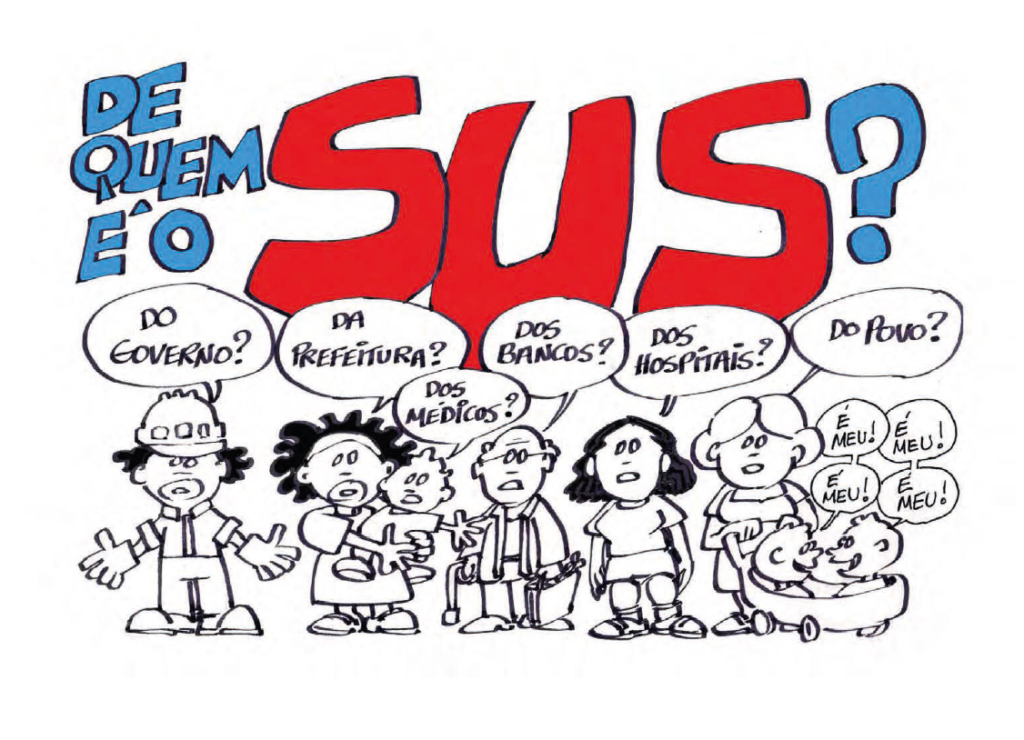 DE
QUEM
É O
SUS?
DO
GOVERNO?
DA
PREFEITURA?
DOS
MÉDICOS?
DOS
BANCOS?
DOS
HOSPITAIS?
DO POVO?
É
MEU!
É
MEU!
É
MEU!
É
MEU!